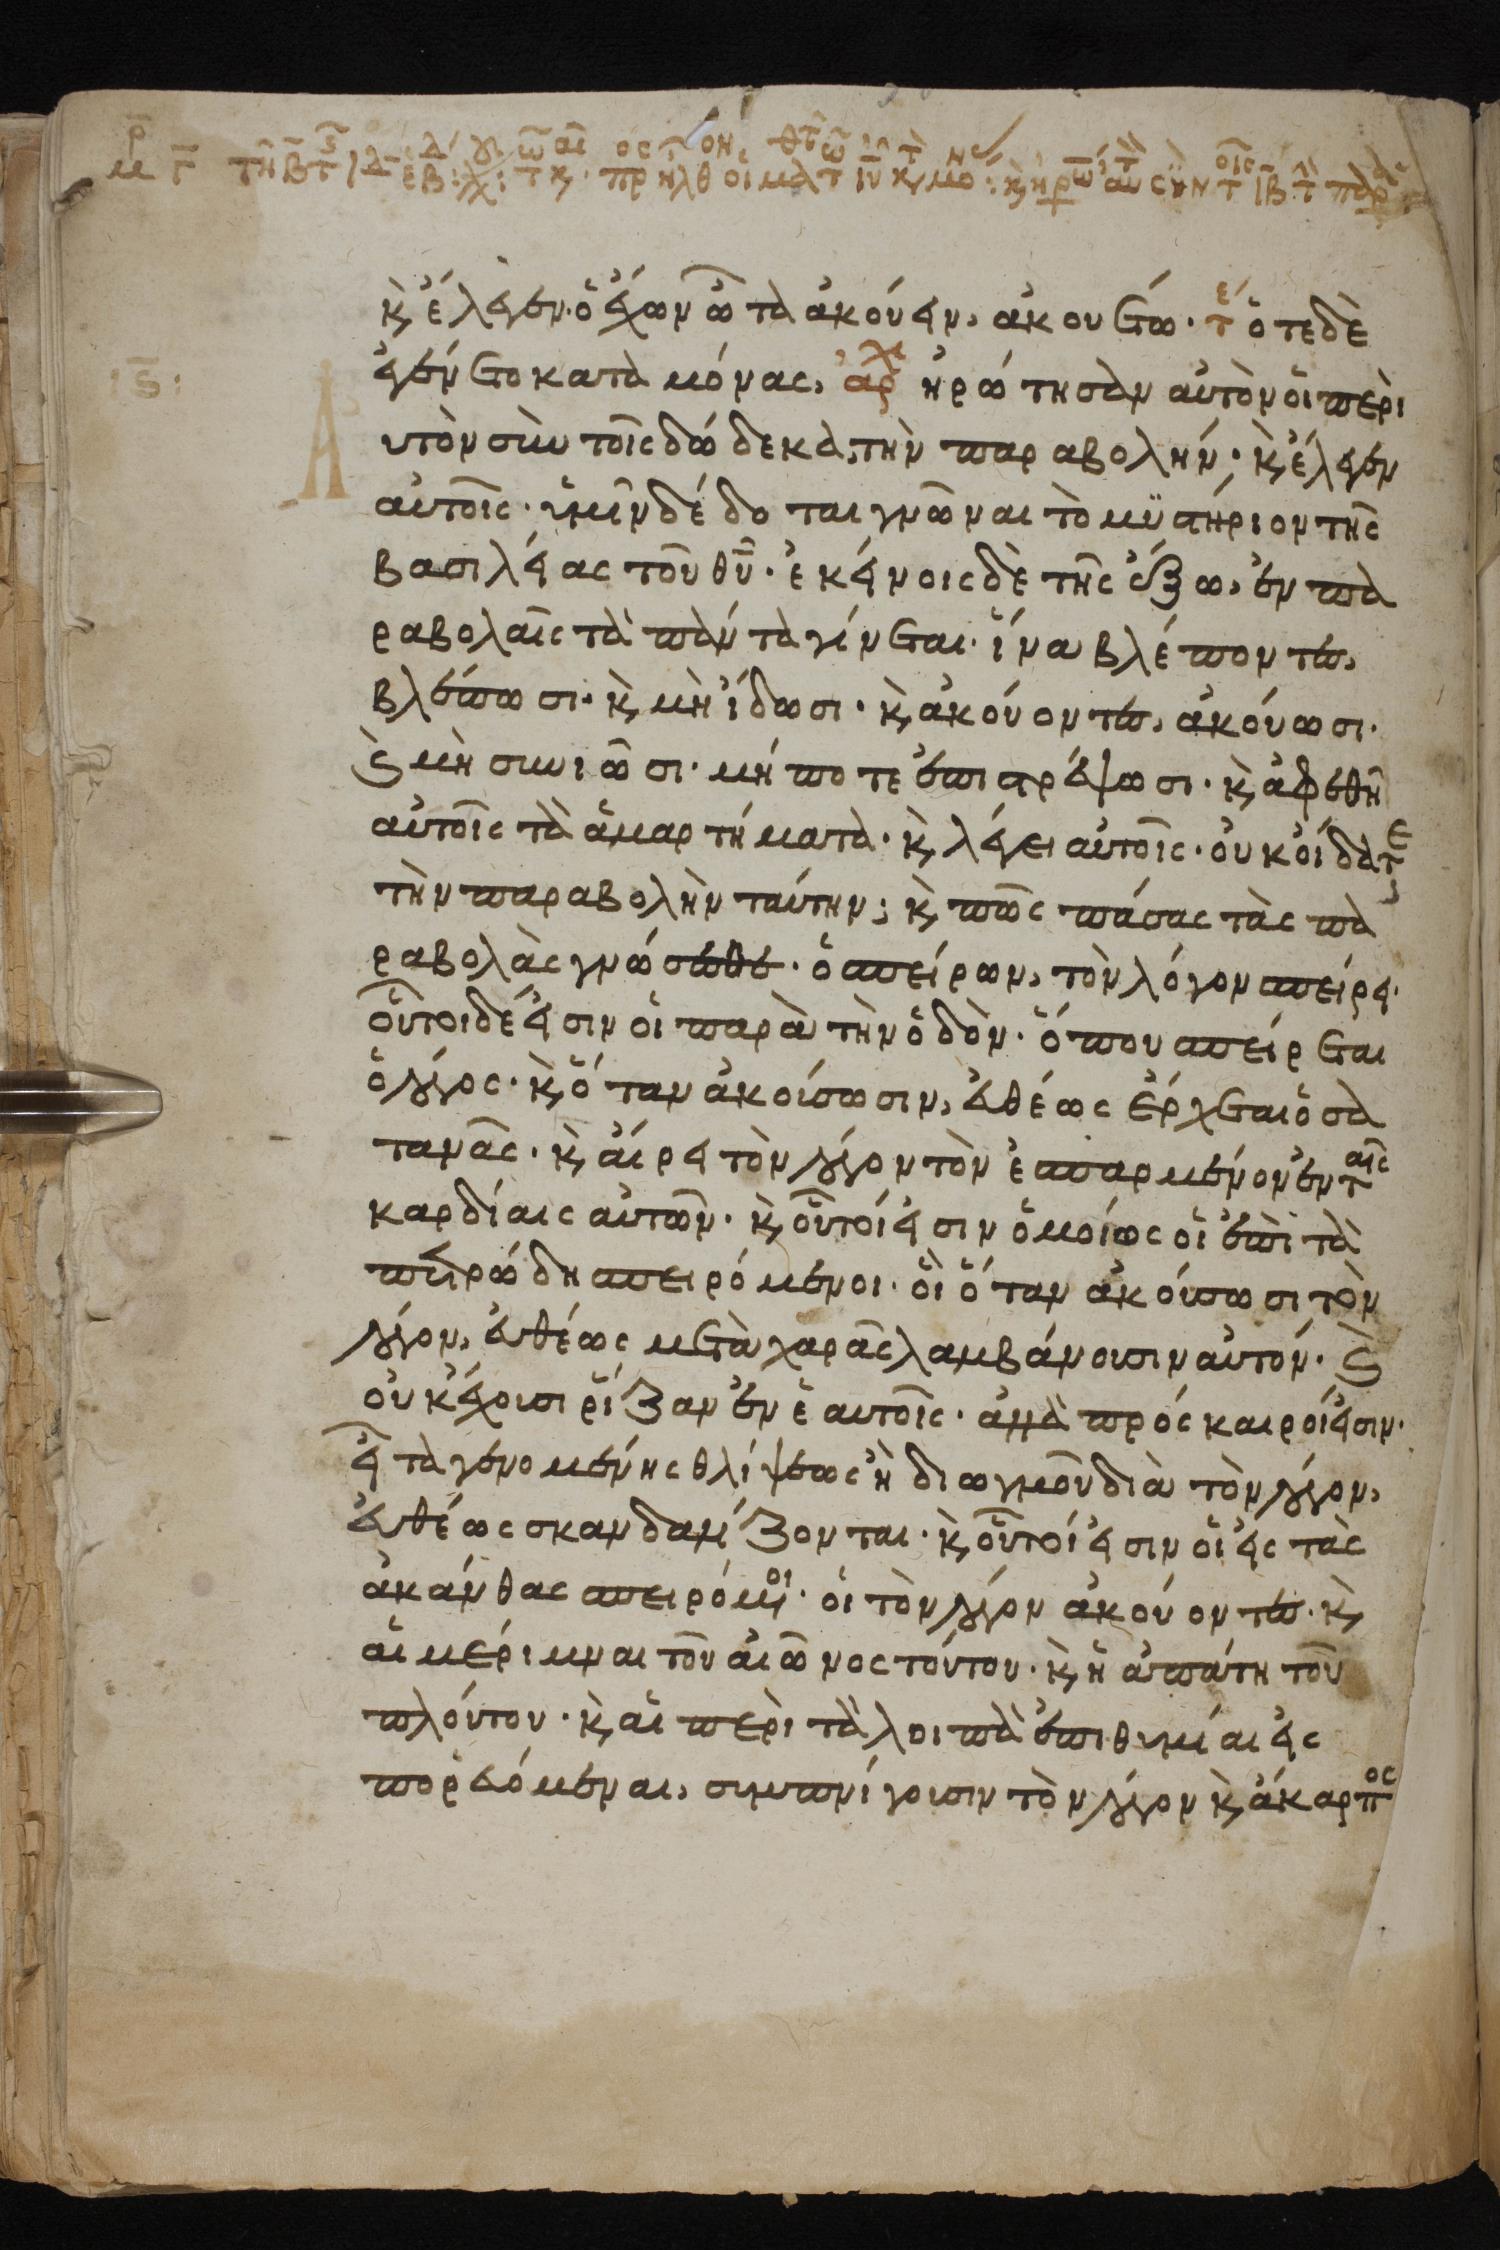 κ(αὶ) ἔλεγεν· ὁ ἔχων ὦτα ἀκούειν, ἀκουέτω· τέ ὅτε δὲ
ἐγένετο κατὰ μόνας, ἀρχ ἠρώτησαν αὐτὸν οἱ περὶ
Αὐτὸν σὺν τοῖς δώδεκα, τὴν παραβολήν· κ(αὶ) ἔλεγεν
αὐτοῖς· ὑμῖν δέδοται γνῶναι τὸ μυστήριον τῆς
βασιλείας τοῦ θῦ· ἐκείνοις δὲ τῆς ἔξω, ἐν πα
ραβολαῖς τὰ πάντα γίνεται· ἵνα βλέποντες,
βλέπωσι· κ(αὶ) μὴ ἴδωσι· κ(αὶ) ἀκούοντες, ἀκούωσι·
κ(αὶ) μὴ συνιῶσι· μήποτε ἐπιστρέψωσι· κ(αὶ) ἀφεθῆ
αὐτοῖς τὰ ἁμαρτήματα· κ(αὶ) λέγει αὐτοῖς· οὐκ οἴδατε
τὴν παραβολὴν ταύτην; κ(αὶ) πῶς πάσας τὰς πα
ραβολὰς γνώσεσθε· ὁ σπείρων, τὸν λόγον σπείρει·
οὗτοι δέ εἰσιν οἱ παρὰ τὴν ὁδὸν· ὅπου σπείρεται
ὁ λόγος· κ(αὶ) ὅταν ἀκούσωσιν, εὐθέως ἔρχεται ὁ σα
τανᾶς· κ(αὶ) αἴρει τὸν λόγον τὸν ἐσπαρμένον ἐν ταῖς
καρδίαις αὐτῶν· κ(αὶ) οὗτοί εἰσιν ὁμοίως οἱ ἐπὶ τὰ
πετρώδη σπειρόμενοι· οἳ ὅταν ἀκούσωσι τὸν
λόγον, εὐθέως μετὰ χαρᾶς λαμβάνουσιν αὐτόν· κ(αὶ)
οὐκ ἔχουσι ῥίζαν ἐν ἑαυτοῖς· ἀλλὰ πρόςκαιροί εἰσιν·
εἶτα γενομένης θλίψεως ἢ διωγμοῦ διὰ τὸν λόγον,
εὐθέως σκανδαλίζονται· κ(αὶ) οὗτοί εἰσιν οἱ εἰς τὰς
ἀκάνθας σπειρόμ(εν)οι· οἱ τὸν λόγον ἀκούοντες· κ(αὶ)
αἱ μέριμναι τοῦ αἰῶνος τούτου· κ(αὶ) ἡ ἀπάτη τοῦ
πλούτου· κ(αὶ) αἱ περὶ τὰ λοιπὰ ἐπιθυμίαι εἰς
πορευόμεναι, συμπνίγουσιν τὸν λόγον κ(αὶ) ἄκαρπος